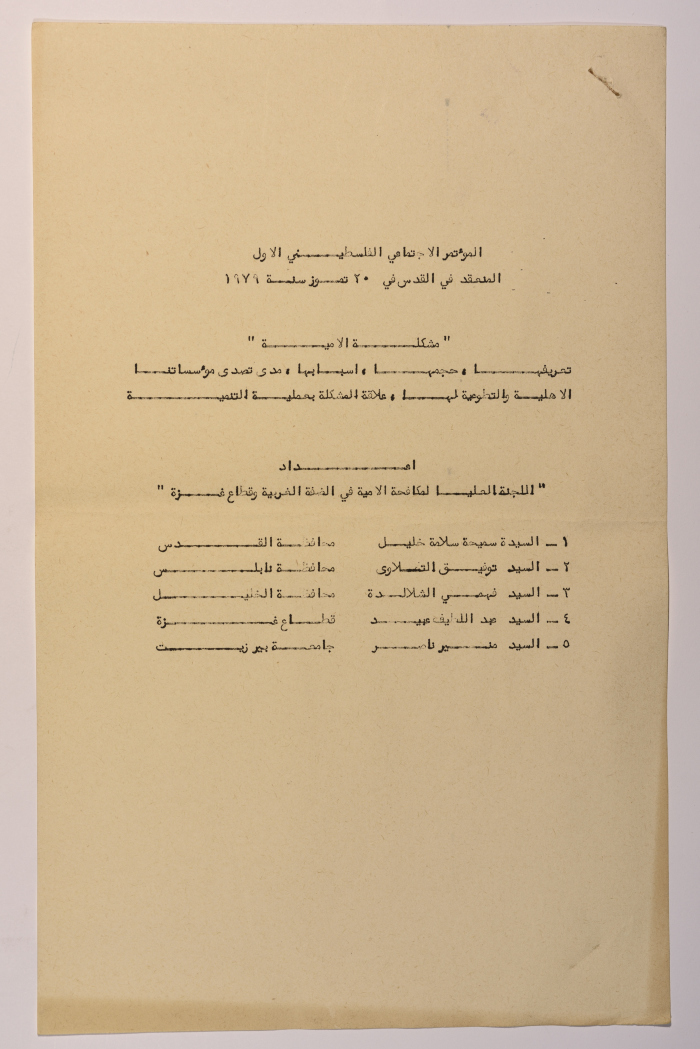 المؤتمر الاجتماعي الفلسطيني الاول
المنعقد في القدس في ٢٠ تموز سنة ١٩٧٩
" مشكلة الامية "
تعريفها ، حجمها ، اسبابها ، مدى تصدى مؤسساتنا
الاهلية والتطوعية لها ، علاقة المشكلة بعملية التنمية
اعداد
" اللجنة العليا لمكافحة الامية في الضفة الغربية وقطاع غزة "
١ ـ السيدة سميحة سلامة خليل محافظة القدس
٢ ـ السيد توفيق التملاوى محافظة نابلس
٣ ـ السيد فهمي الشلالدة محافظة الخليل
٤ ـ السيد عبد اللطيف عبيد قطاع غزة
٥ ـ السيد منير ناصر جامعة بير زيت